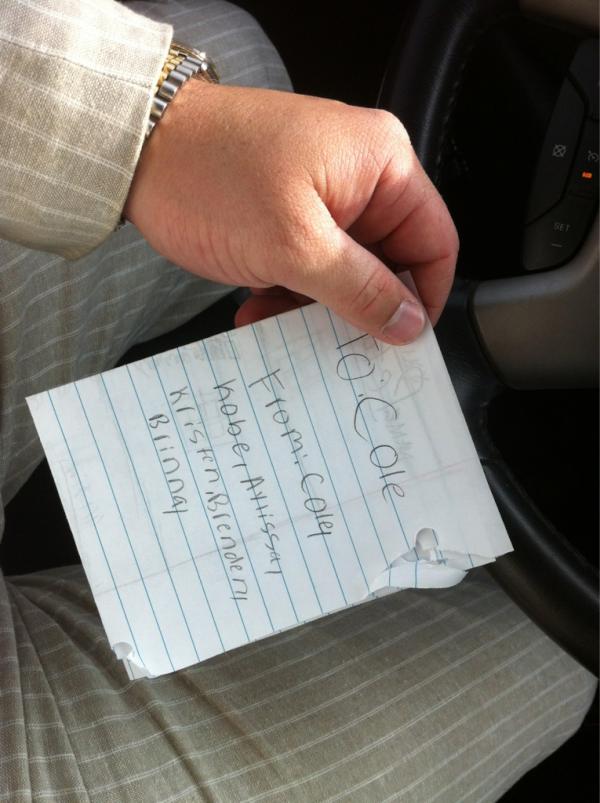 TO: Cole
From: Coley
Kobe, Allissa,
Kristen, Brenden,
Brinna,
SET